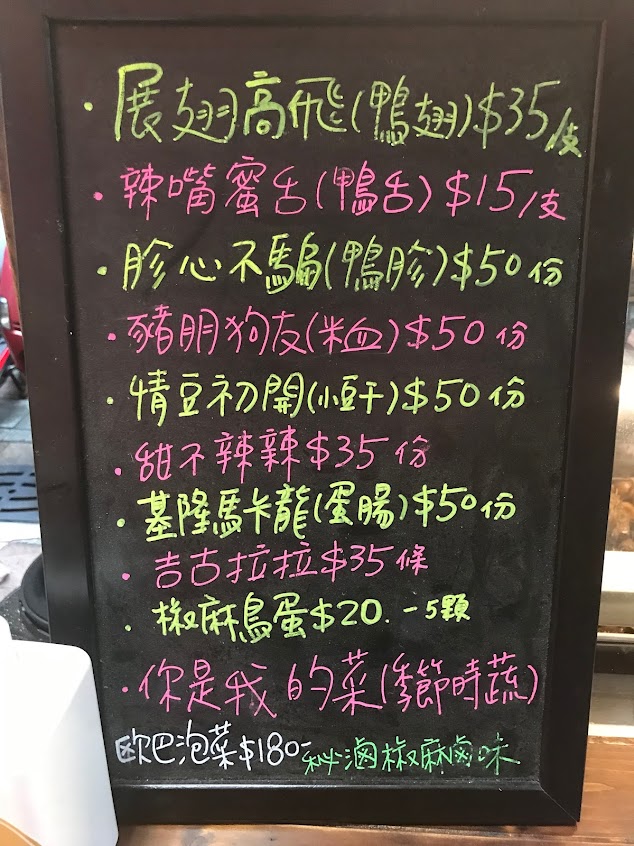 ·展翅高飛(鴨翅)$35/支
·辣嘴蜜舌(鴨舌)$15/支
·胗心不騙(鴨胗)$50份
·豬朋狗友(米血)$50份
·情豆初開(小豆干)$50份
·甜不辣辣$35份
·基隆馬卡龍(蛋腸)$50份
·吉古拉拉$35條
·椒麻鳥蛋$20.-5顆
·你是我的菜(季節時蔬)
歐巴泡菜$180- 秘滷椒麻滷味